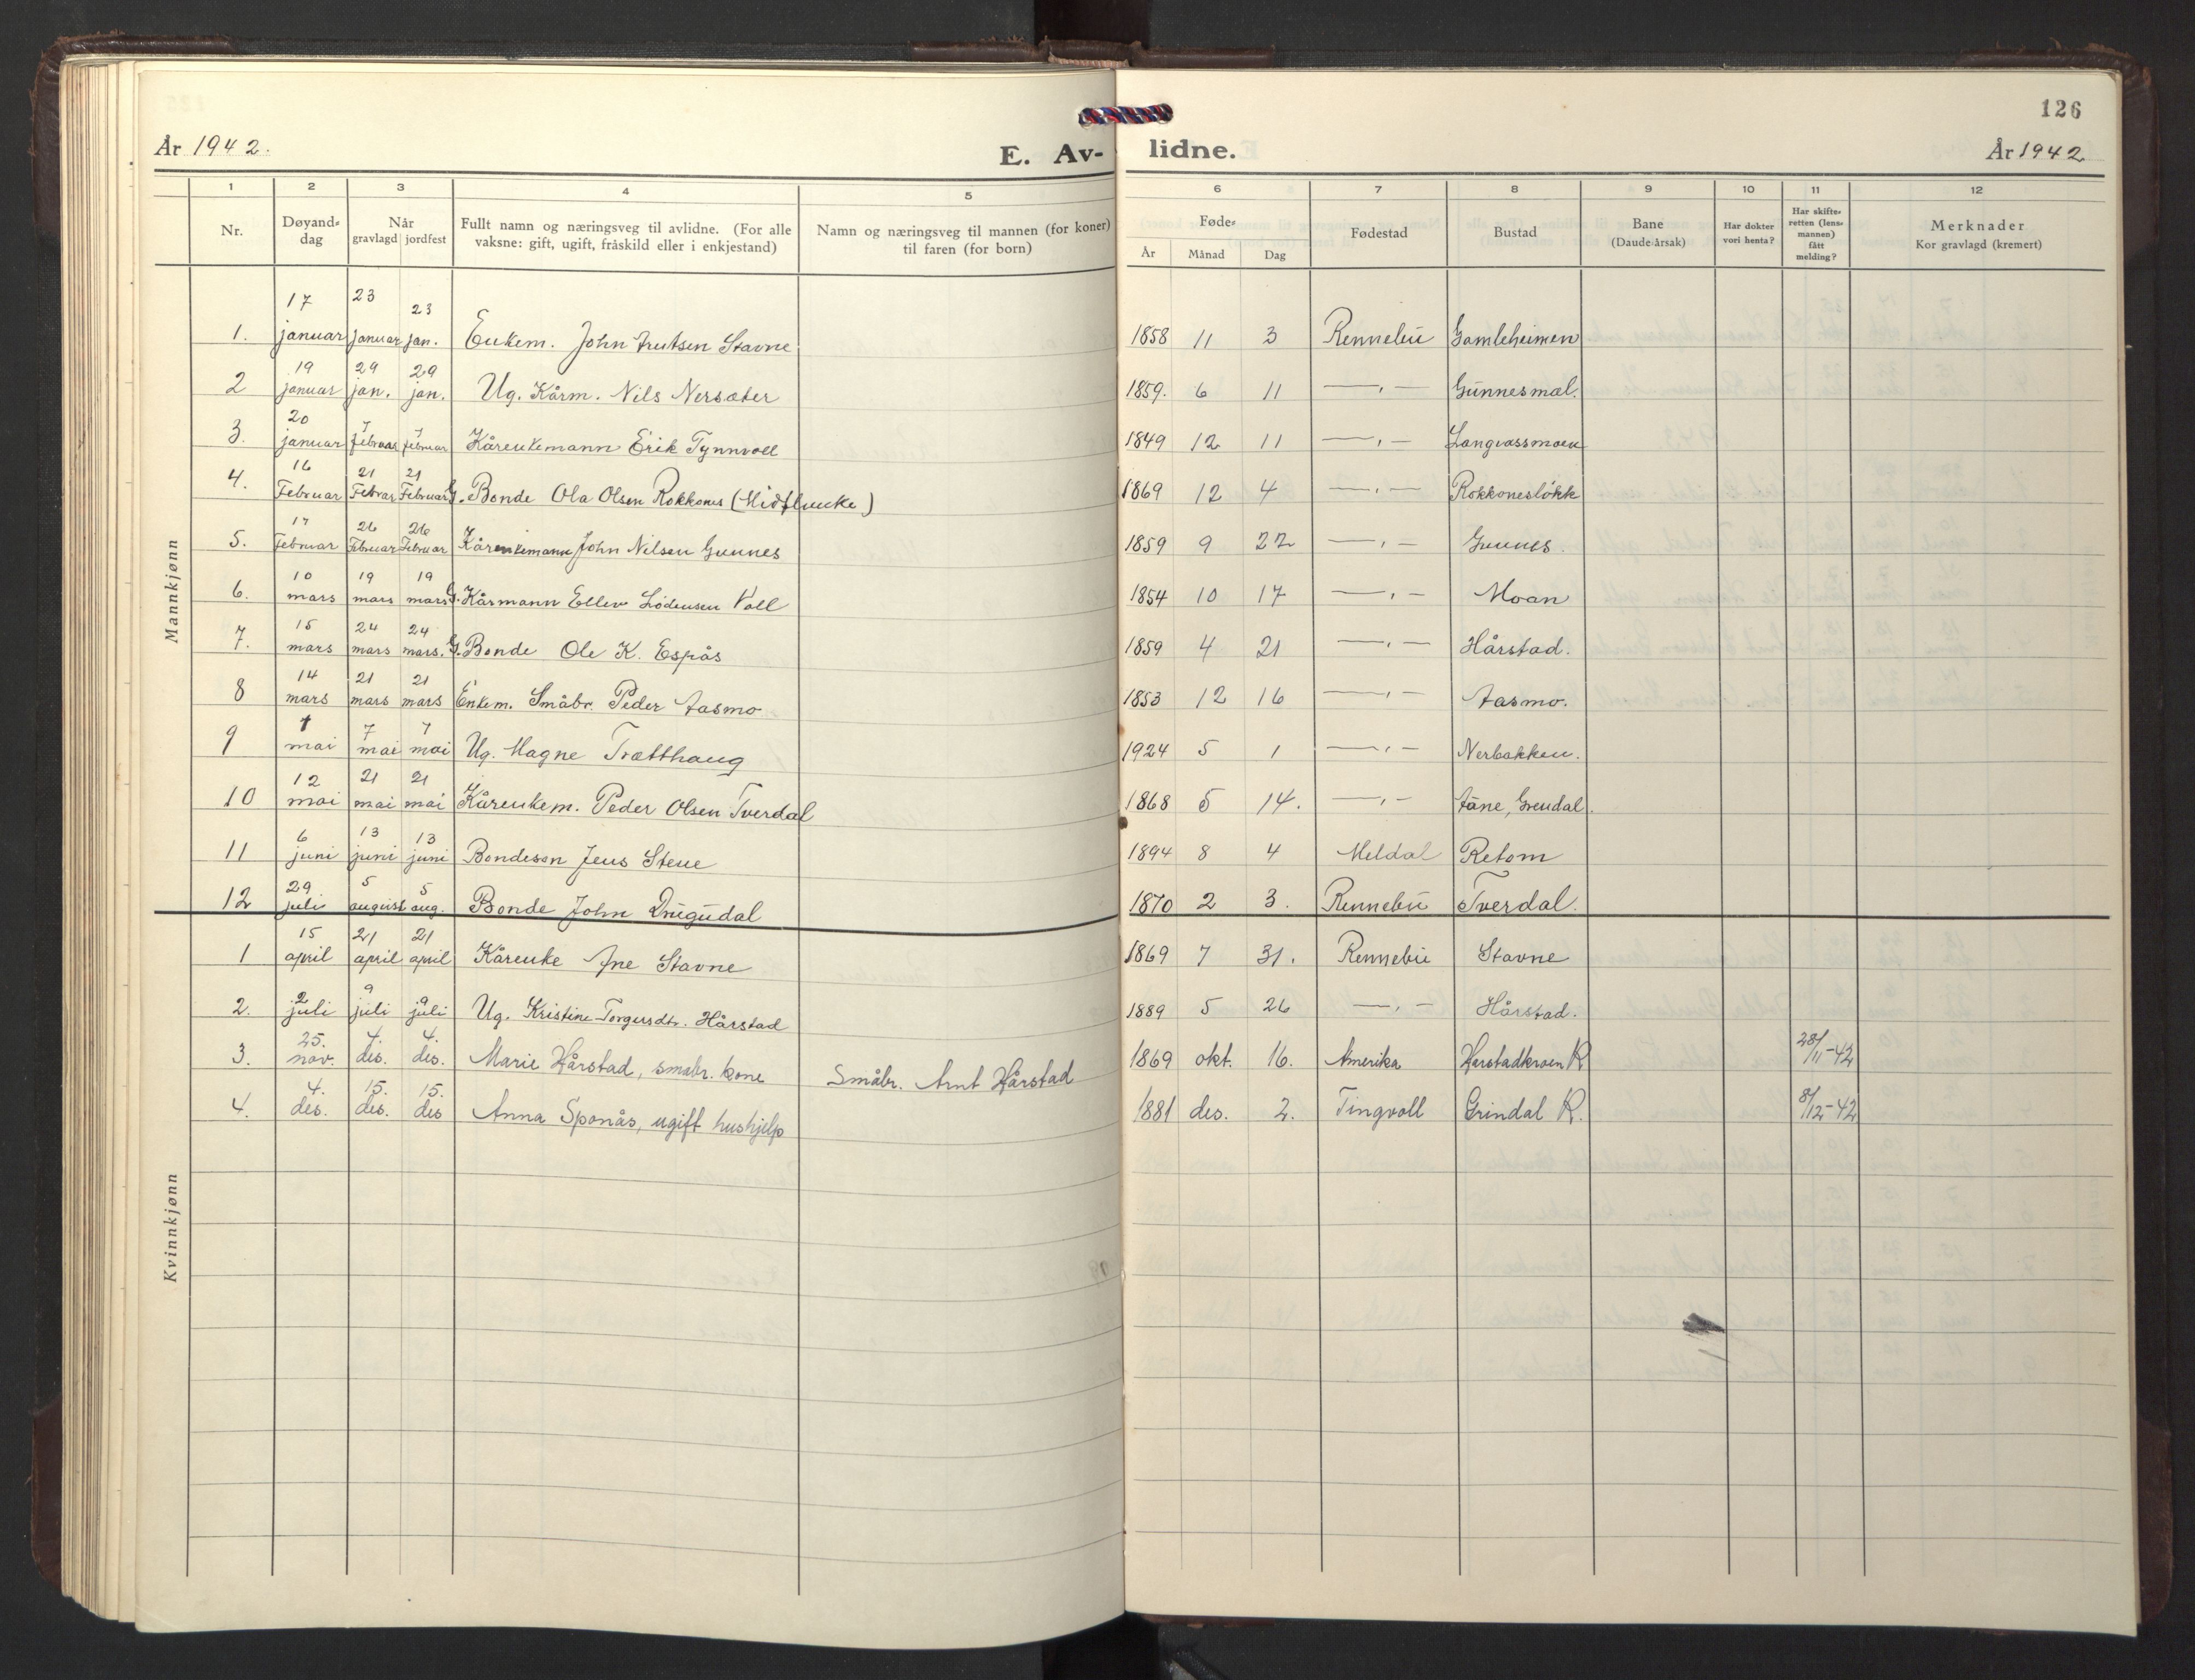 126
År 1942.
E. Av-
lidne.
År 1942
1 2 3 4 5 6 7 8 9 10 11 12
Nr.
Døyand-
dag
Når
gravlagd jordfest
Fullt namn og næringsveg til avlidne. (For alle
vaksne: gift, ugift, fråskild eller i enkjestand)
Namn og næringsveg til mannen (for koner)
til faren (for born)
Føde-
År Månad Dag
Fødestad
Bustad
Bane
(Daude-årsak)
Har dokter
vori henta?
Har skifte-
retten (lens-
mannen)
fått
melding?
Merknader
Kor gravlagd (kremert)
Mannkjønn
1. 17 januar 23 januar 23 jan. Enkem. John Stavne 1858 11 3 Rennebu Gamleheimen
2 19 januar 29 jan. 29 jan. Ug. Kårm. Nils Nersæter 1859. 6 11 —„— Gunnesmal.
3. 20 januar 7 februar 7 februar Kårenkemann Erik Tynnvoll 1849 12 11 —„— Langvassmoen
4. 16 Februar 21 Februar 21 Februar G. Bonde Ola Olsen Rokkones 1869 12 4 —„— Rokkonesløkk
5. 17 Februar 26 Februar 26 Februar Kårenkemann John Nilsen Gunnes 1859 9 22 —„— Gunnes.
6. 10 mars 19 mars 19 mars G. Kårmann Ellev Voll 1854 10 17 —„— Moan
7. 15 mars 24 mars 24 mars. G. Bonde Ole K. Espås 1859 4 21 —„— Hårstad.
8 14 mars 21 mars 21 mars Enkem. Småbr. Peder Aasmo 1853 12 16 —„— Aasmo.
9 1 mai 7 mai 7 mai Ug. Magne Trætthaug 1924 5 1 —„— Nerbakken.
10 12 mai 21 mai 21 mai Kårenkem. Peder Olsen Tverdal 1868 5 14. —„— Aane, Grendal.
11 6 juni 13 juni 13 juni Bondesøn Jens Stene 1894 8 4 Meldal Retom
12 29 juli 5 august 5 aug. Bonde John Drugudal 1870 2 3. Rennebu Tverdal.
Kvinnkjønn
1 15 april 21 april 21 april Kårenke Ane Stavne 1869 7 31. Rennebu Stavne
2. 2 juli 9 juli 9 juli Ug. Kristine Torgersdtr. Hårstad 1889 5 26 —„— Hårstad.
3. 25. nov. 4. des. 4. des. Marie Hårstad, småbr. kone Småbr. Arnt Hårstad 1869 okt. 16. Amerika Harstadkroen R 28/11-42
4. 4. des. 15. des. 15. des Anna Sponås, ugift hushjelp 1881 des. 2. Tingvoll Grindal R. 8/12-42